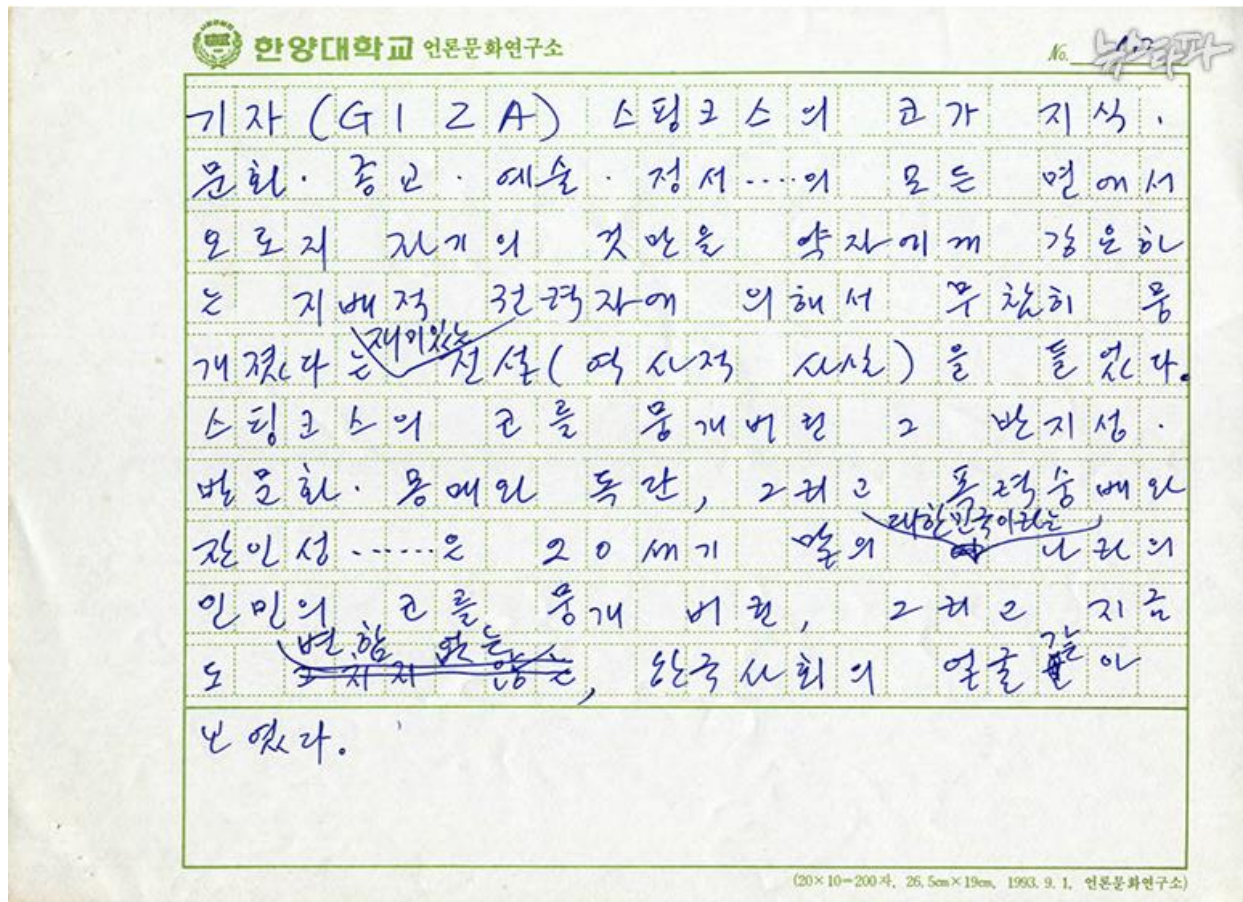 한양대학교 언론문화연구소
No.
뉴스타파
기자(GIZA) 스핑크스의 코가 지식·
문화·종교·예술·정서....의 모든 면에서
오로지 자기의 것만을 약자에게 강요하
는 지배적 권력자에 의해서 무참히 뭉
개졌다는 재미있는 전설(역사적 사실)을 들었다.
스핑크스의 코를 뭉개버린 그 반지성·
반문화·몽매와 독단, 그리고 폭력숭배와
잔인성......은 20세기 말의 대한민국이라는 나라의
인민의 코를 뭉개 버린, 그리고 지금
도 변함 없는, 한국사회의 얼굴 같아
보였다.
(20×10=200자, 26.5cm×19cm, 1993. 9. 1, 언론문화연구소)